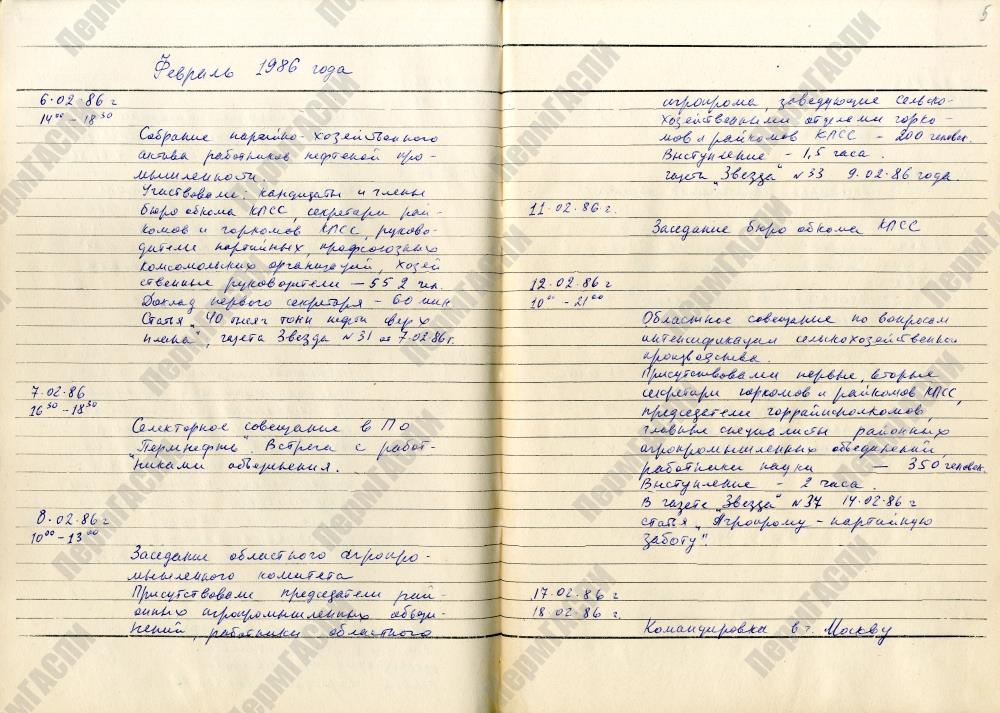 5
Февраль 1986 года
6.02.86 г
14⁰⁰ – 18³⁰
Собрание партийно-хозяйственного
актива работников нефтяной про-
мышленности.
Участвовали: кандидаты и члены
бюро обкома КПСС, секретари рай-
комов и горкомов КПСС, руково-
дители партийных профсоюзных
комсомольских организаций, хозяй
ственные руководители – 552 чел.
Доклад первого секретаря – 60 мин.
Статья „40 тысяч тонн нефти сверх
плана", газета Звезда N 31 от 7.02.86г.
7.02.86
16³⁰ – 18³⁰
Селекторное совещание в ПО
„Пермнефть". Встреча с работ-
никами объединения.
8.02.86 г
10⁰⁰ – 13⁰⁰
Заседание областного агропро-
мышленного комитета
Присутствовали председатели рай-
онных агропромышленных объеди-
нений, работники областного
агропрома, заведующие сельско-
хозяйственными отделами горко-
мов и райкомов КПСС – 200 человек.
Выступление – 1,5 часа.
газета „Звезда" N 33 9.02.86 года.
11.02.86 г.
Заседание бюро обкома КПСС
12.02.86 г
10⁰⁰ – 21⁰⁰
Областное совещание по вопросам
интенсификации сельскохозяйственного
производства.
Присутствовали первые, вторые
секретари горкомов и райкомов КПСС,
председатели горрайисполкомов,
главные специалисты районных
агропромышленных объединений,
работники науки – 350 человек.
Выступление – 2 часа.
В газете „Звезда" N 37 14.02.86 г
статья „Агропрому – партийную
заботу".
17.02.86 г
18.02.86 г
Командировка в г. Москву
ПермГАСПИ